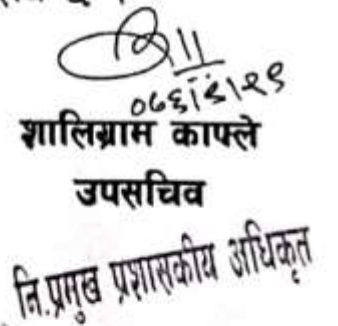 शालिग्राम काफ्ले
उपसचिव
नि.प्रमुख प्रशासकीय अधिकृत